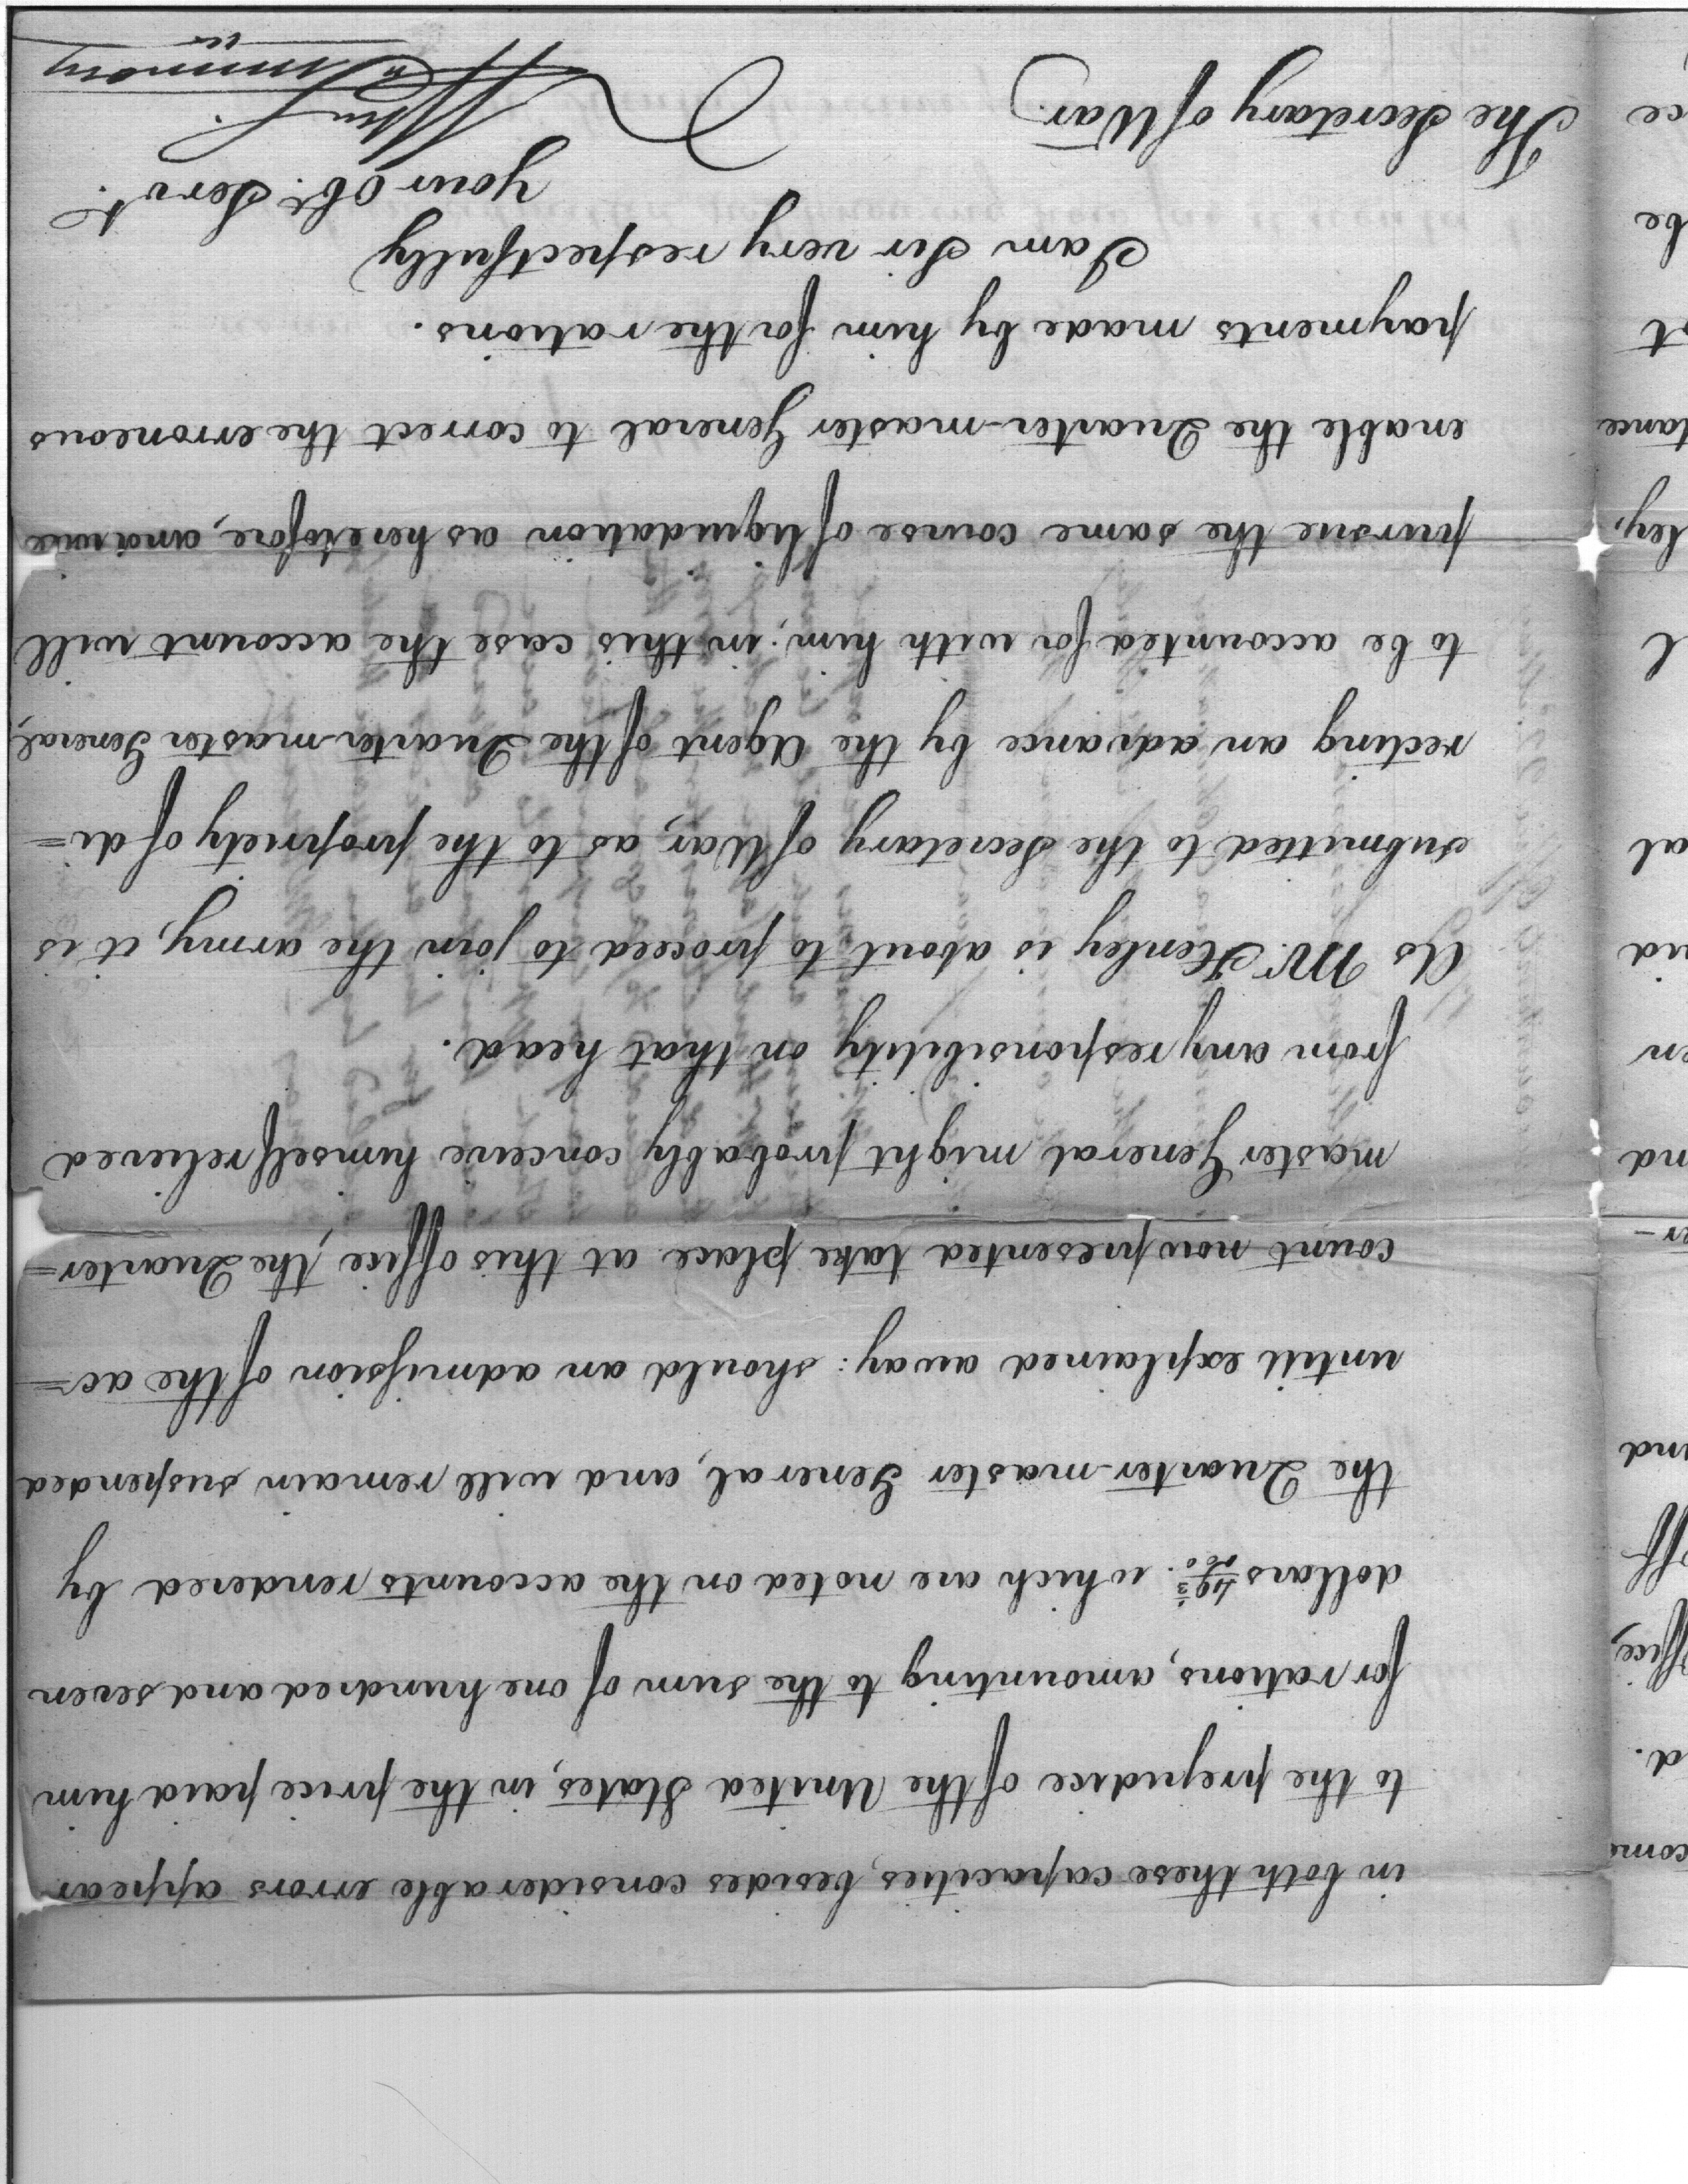 in both these capacities, besides considerable errors appear
to the prejudice of the United States, in the price paid him
for rations, amounting to the sum of one hundred and seven
dollars which are noted on the accounts rendered by
the Quarter-master General, and will remain suspended
untill explained away: should an admission of the ac=
count now presented take place at this office, the Quarter=
master General might probably conceive himself relieved
from any responsibility on that head.
As Mr. Henley is about to proceed to join the army, it is
submitted to the Secretary of War, as to the propriety of di=
recting an advance by the Agent of the Quarter-master General,
to be accounted for with him; in this case the account will
pursue the same course of liquidation as heretofore, and
enable the Quarter-master General to correct the erroneous
payments made by him for the rations.
I am Sir very respectfully
your Obt. Servt.
The Secretary of War
ce
be
tance
ley,
l
al
en
nd
er-
nd
ffice,
d.